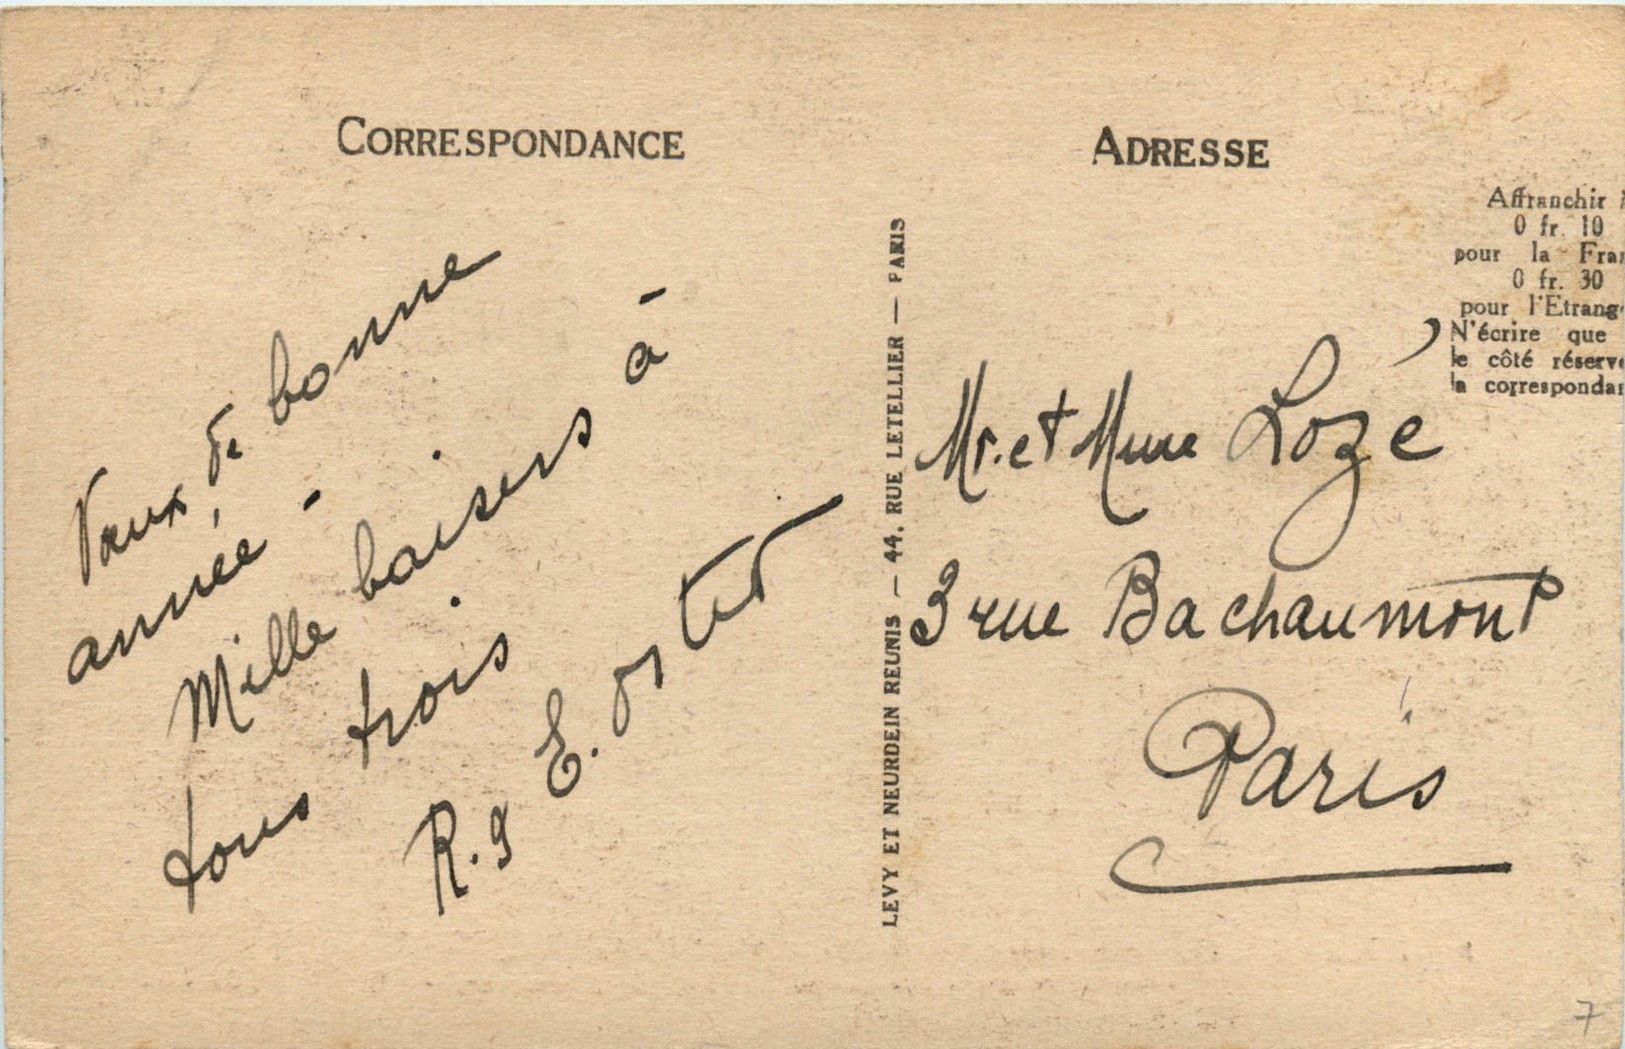 CORRESPONDANCE
Vœux de bonne
année -
Mille baisers à
tous trois
R. E.
LEVY ET NEURDEIN REUNIS — 44, RUE LETELLIER — PARIS
ADRESSE
Affranchir
0 fr. 10
pour la Fran
0 fr. 30
pour l'Etrang
N'écrire que
le côté réservé
la correspondan
Mr. et Mme Lozé
3 rue Bachaumont
Paris
7